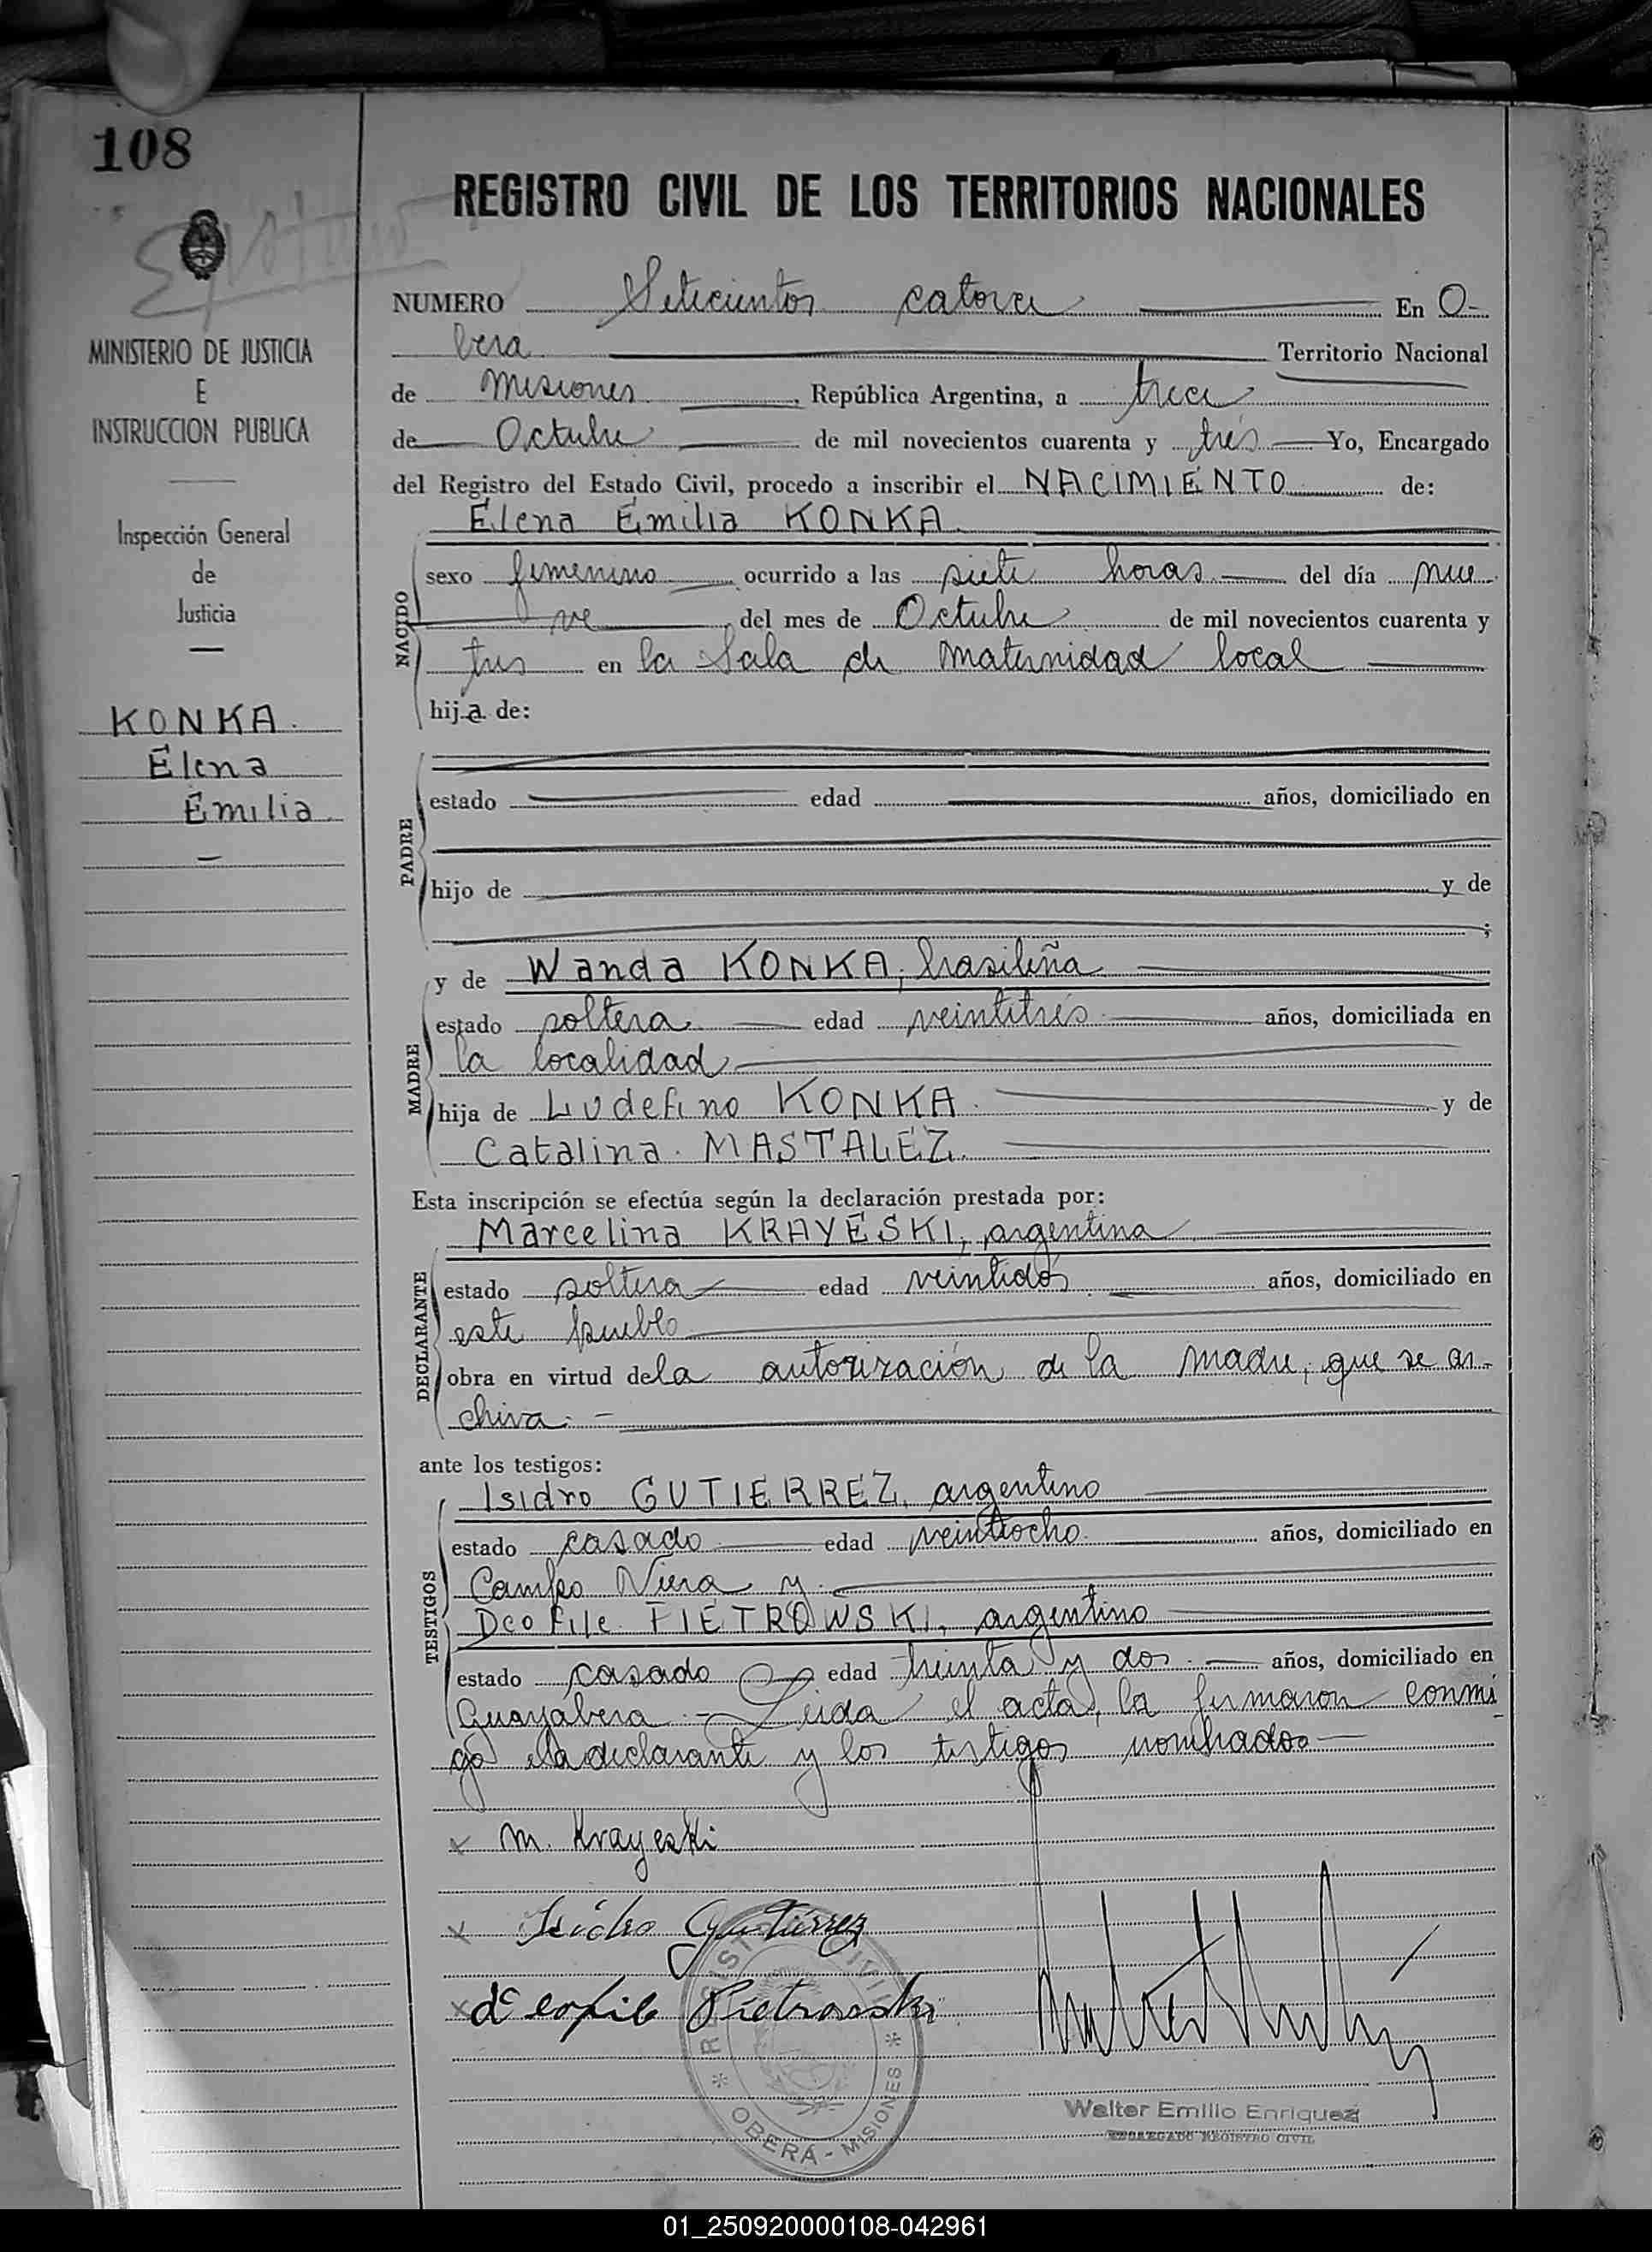 108
REGISTRO CIVIL DE LOS TERRITORIOS NACIONALES
MINISTERIO DE JUSTICIA
E
INSTRUCCION PUBLICA
Inspección General
de
Justicia
KONKA.
Elena
Emilia.
NUMERO Setecientos catorce En O-
bera Territorio Nacional
de Misiones, República Argentina, a trece
de Octubre de mil novecientos cuarenta y tres Yo, Encargado
del Registro del Estado Civil, procedo a inscribir el NACIMIENTO de:
Elena Emilia KONKA
NACIDO
sexo femenino ocurrido a las siete horas del día nue
ve del mes de Octubre de mil novecientos cuarenta y
tres en la Sala de Maternidad local
hija de:
PADRE
estado edad años, domiciliado en
hijo de y de
;
MADRE
y de Wanda KONKA, brasileña
estado soltera edad veintitrés años, domiciliada en
la localidad
hija de Ludefino KONKA y de
Catalina MASTALEZ.
Esta inscripción se efectúa según la declaración prestada por:
DECLARANTE
Marcelina KRAYESKI, argentina
estado soltera edad veintidos años, domiciliado en
este pueblo
obra en virtud de la autorización de la madre, que se ar-
chiva. -
ante los testigos:
TESTIGOS
Isidro GUTIERREZ, argentino
estado casado edad veintiocho años, domiciliado en
Campo Viera y
Deofile PIETROWSKI, argentino
estado casado edad treinta y dos años, domiciliado en
Guayabera. - Leida el acta, la firmaron conmi
go la declarante y los testigos nombrados
x M. Krayeski
x Isidro Gutiérrez
x Pietrowski
REGISTRO CIVIL
* OBERÁ - MISIONES *
Walter Emilio Enriquez
ENCARGADO REGISTRO CIVIL
01_250920000108-042961